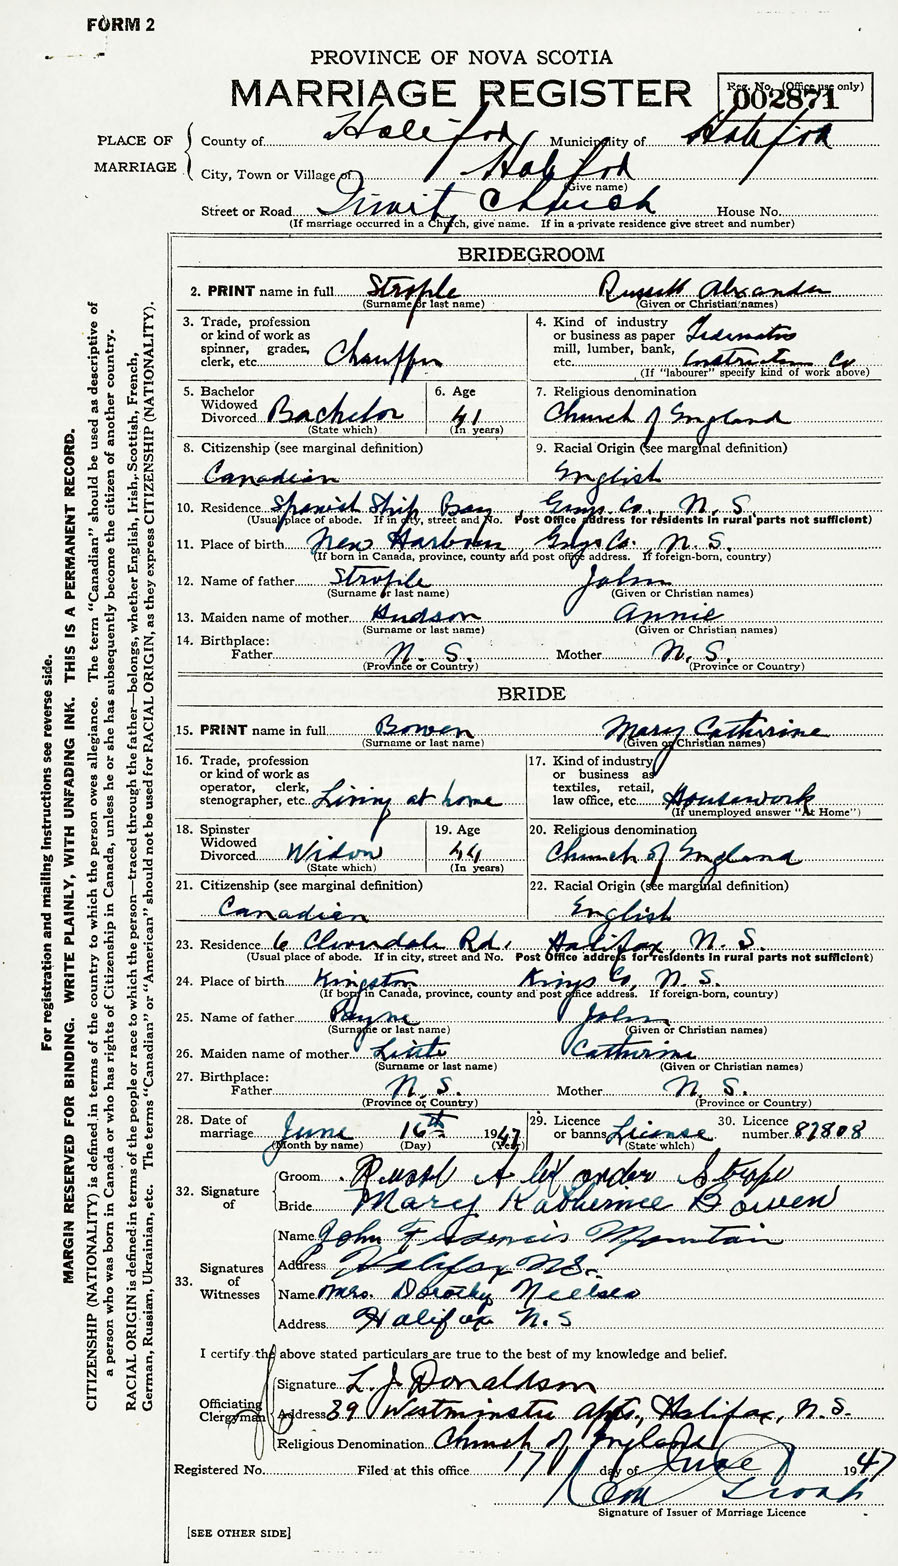 FORM 2
PROVINCE OF NOVA SCOTIA
MARRIAGE REGISTER
Reg. No. (Office use only)
002871
PLACE OF MARRIAGE
County of Halifax Municipality of Halifax
City, Town or Village of Halifax
(Give name)
Street or Road Trinity Church House No.
(If marriage occurred in a Church, give name. If in a private residence give street and number)
BRIDEGROOM
2. PRINT name in full Strople Russell Alexander
(Surname or last name) (Given or Christian names)
3. Trade, profession or kind of work as spinner, grader, clerk, etc. Chauffer
4. Kind of industry or business as paper mill, lumber, bank, etc. Construction Co
(If "labourer" specify kind of work above)
5. Bachelor Widowed Divorced Bachelor
(State which)
6. Age 41
(In years)
7. Religious denomination
Church of England
8. Citizenship (see marginal definition)
Canadian
9. Racial Origin (see marginal definition)
English
10. Residence Spanish Ship Bay, Guys Co., N. S.
(Usual place of abode. If in city, street and No. Post Office address for residents in rural parts not sufficient)
11. Place of birth New Harbour Guys Co., N. S.
(If born in Canada, province, county and post office address. If foreign-born, country)
12. Name of father Strople John
(Surname or last name) (Given or Christian names)
13. Maiden name of mother Hudson Annie
(Surname or last name) (Given or Christian names)
14. Birthplace:
Father N. S. Mother N. S.
(Province or Country) (Province or Country)
BRIDE
15. PRINT name in full Bowen Mary Catherine
(Surname or last name) (Given or Christian names)
16. Trade, profession or kind of work as operator, clerk, stenographer, etc. Living at home
17. Kind of industry or business as textiles, retail, law office, etc. Housework
(If unemployed answer "At Home")
18. Spinster Widowed Divorced Widow
(State which)
19. Age 44
(In years)
20. Religious denomination
Church of England
21. Citizenship (see marginal definition)
Canadian
22. Racial Origin (see marginal definition)
English
23. Residence 6 Rd., Halifax, N. S.
(Usual place of abode. If in city, street and No. Post Office address for residents in rural parts not sufficient)
24. Place of birth Kingston Kings Co, N. S.
(If born in Canada, province, county and post office address. If foreign-born, country)
25. Name of father Payne John
(Surname or last name) (Given or Christian names)
26. Maiden name of mother Catherine
(Surname or last name) (Given or Christian names)
27. Birthplace:
Father N. S. Mother N. S.
(Province or Country) (Province or Country)
28. Date of marriage June 16th 1947
(Month by name) (Day) (Year)
29. Licence or banns License
(State which)
30. Licence number 87808
32. Signature of
Groom Russell Alexander Strople
Bride Mary Katherine Bowen
33. Signatures of Witnesses
Name John Francis Mountain
Address Halifax NS.
Name Mrs. Dorothy
Address Halifax N. S
I certify the above stated particulars are true to the best of my knowledge and belief.
Officiating Clergyman
Signature L. J. Donaldson
Address 39 Westminster Apts., Halifax, N. S.
Religious Denomination Church of England
Registered No. Filed at this office 17 day of June 1947
Signature of Issuer of Marriage Licence
[SEE OTHER SIDE]
For registration and mailing instructions see reverse side.
MARGIN RESERVED FOR BINDING. WRITE PLAINLY, WITH UNFADING INK. THIS IS A PERMANENT RECORD.
CITIZENSHIP (NATIONALITY) is defined in terms of the country to which the person owes allegiance. The term "Canadian" should be used as descriptive of
a person who was born in Canada or who has rights of Citizenship in Canada, unless he or she has subsequently become the citizen of another country.
RACIAL ORIGIN is defined in terms of the people or race to which the person—traced through the father—belongs, whether English, Irish, Scottish, French,
German, Russian, Ukrainian, etc. The terms "Canadian" or "American" should not be used for RACIAL ORIGIN, as they express CITIZENSHIP (NATIONALITY).